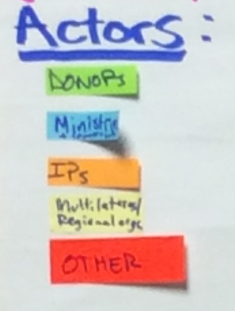 Actors:
DONORS
Ministry
IPs
Multilateral/
Regional orgs
OTHER